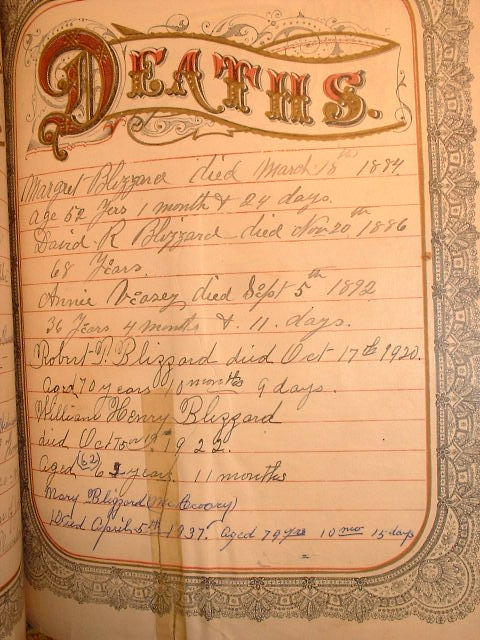 DEATHS.
Margret Blizzard died March 18th 1884
age 52 Yrs 1 month & 24 days.
David R Blizzard died Nov 20th 1886
68 Years.
Annie Veasey died Sept 5th 1892
36 Years 4 months & 11 days.
Robert T. Blizzard died Oct 17th 1920.
aged 70 years 10 months 9 days.
William Henry Blizzard
died 1922.
aged (62) years 11 months
Mary Blizzard
Died April 5th 1937. aged 79 yrs 10 mo 15 days